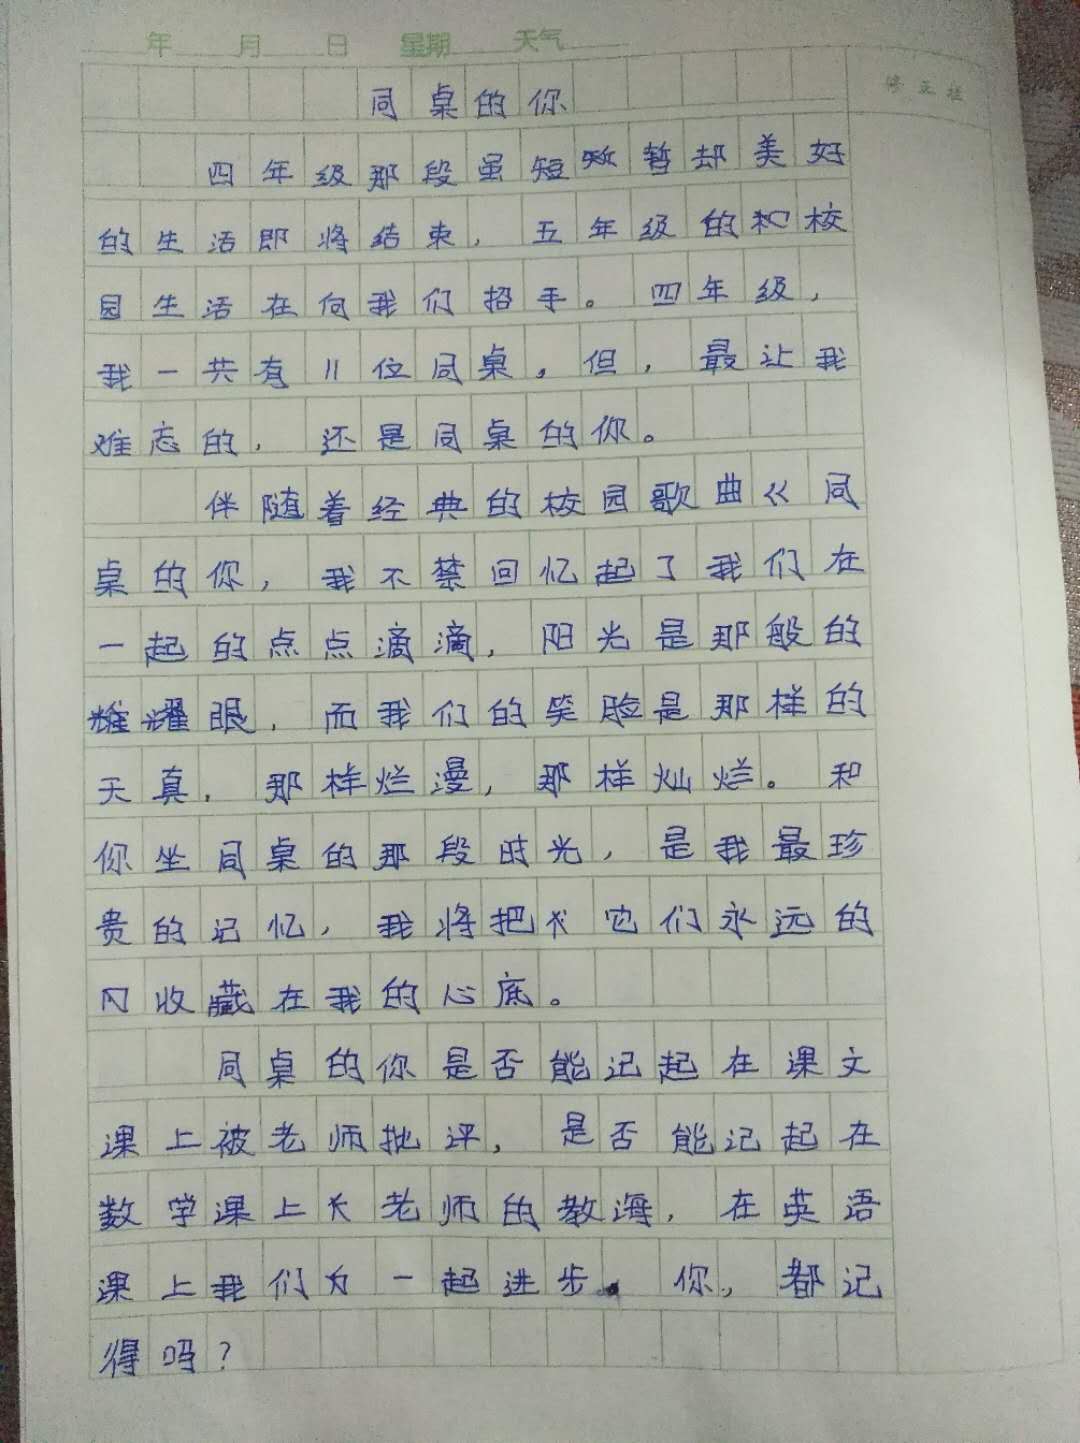 年 月 日 星期 天气
修正栏
同桌的你
四年级那段虽短暂却美好
的生活即将结束，五年级的和校
园生活在向我们招手。四年级，
我一共有11位同桌，但，最让我
难忘的，还是同桌的你。
伴随着经典的校园歌曲《同
桌的你，我不禁回忆起了我们在
一起的点点滴滴，阳光是那般的
耀眼，而我们的笑脸是那样的
天真，那样烂漫，那样灿烂。和
你坐同桌的那段时光，是我最珍
贵的记忆，我将把它们永远的
收藏在我的心底。
同桌的你是否能记起在课文
课上被老师批评，是否能记起在
数学课上老师的教海，在英语
课上我们一起进步。你，都记
得吗？